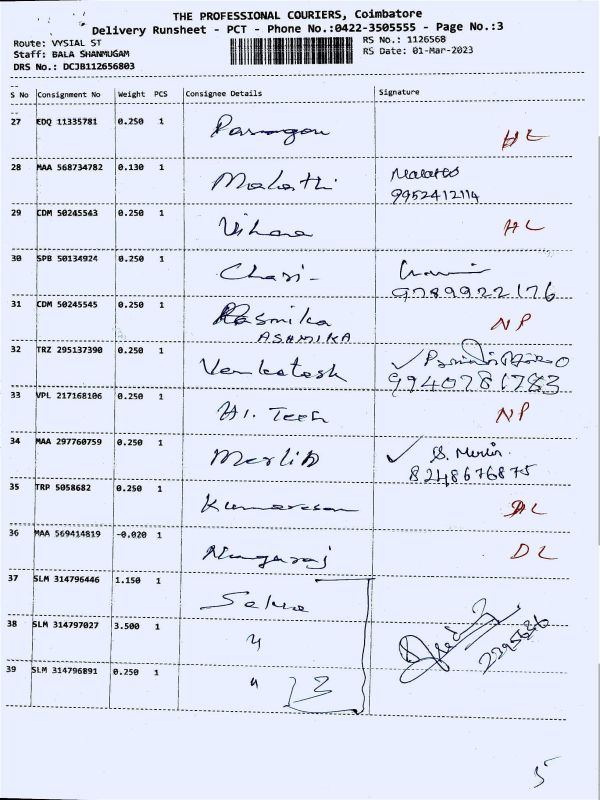 THE PROFESSIONAL COURIERS, Coimbatore
Delivery Runsheet - PCT - Phone No.:0422-3505555 - Page No.:3
Route: VYSIAL ST
RS No.: 1126568
Staff: BALA SHANMUGAM
RS Date: 01-Mar-2023
DRS No.: DCJB112656803
S No Consignment No Weight PCS Consignee Details Signature
27 EDQ 11335781 0.250 1 Paramgon HL
28 MAA 568734782 0.130 1 Malathi Malathi
9952412114
29 CDM 50245543 0.250 1 Vihana HL
30 SPB 50134924 0.250 1 Chari-
9789922176
31 CDM 50245545 0.250 1 Rasmika NP
ASHMIKA
32 TRZ 295137390 0.250 1 Venkatesh
9940781783
33 VPL 217168106 0.250 1 Hi. Tech NP
34 MAA 297760759 0.250 1 Merlin S. Merlin
8248676875
35 TRP 5058682 0.250 1 Kumaresan DL
36 MAA 569414819 -0.020 1 Nagaraj DL
37 SLM 314796446 1.150 1
38 SLM 314797027 3.500 1 "
39 SLM 314796891 0.250 1 " 3
5